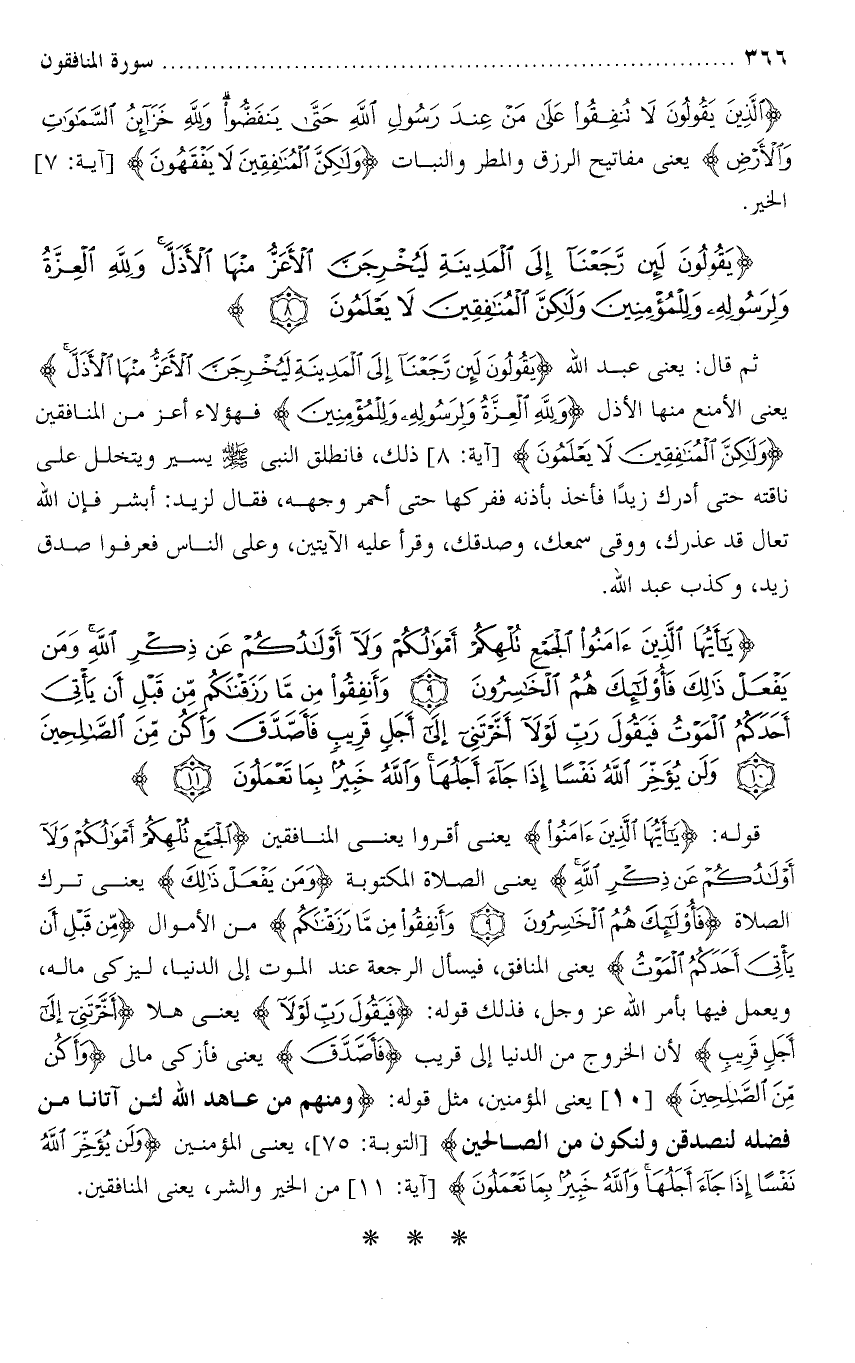 ٣٦٦ ........................................................................ سورة المنافقون
﴿ٱلَّذِينَ يَقُولُونَ لَا تُنفِقُواْ عَلَىٰ مَنْ عِندَ رَسُولِ ٱللَّهِ حَتَّىٰ يَنفَضُّواْۗ وَلِلَّهِ خَزَآئِنُ ٱلسَّمَٰوَٰتِ
وَٱلْأَرْضِ﴾ يعنى مفاتيح الرزق والمطر والنبات ﴿وَلَٰكِنَّ ٱلْمُنَٰفِقِينَ لَا يَفْقَهُونَ﴾ [آية: ٧]
الخير.
﴿يَقُولُونَ لَئِن رَّجَعْنَآ إِلَى ٱلْمَدِينَةِ لَيُخْرِجَنَّ ٱلْأَعَزُّ مِنْهَا ٱلْأَذَلَّۚ وَلِلَّهِ ٱلْعِزَّةُ
وَلِرَسُولِهِۦ وَلِلْمُؤْمِنِينَ وَلَٰكِنَّ ٱلْمُنَٰفِقِينَ لَا يَعْلَمُونَ ٨ ﴾
ثم قال: يعنى عبد الله ﴿يَقُولُونَ لَئِن رَّجَعْنَآ إِلَى ٱلْمَدِينَةِ لَيُخْرِجَنَّ ٱلْأَعَزُّ مِنْهَا ٱلْأَذَلَّۚ﴾
يعنى الأمنع منها الأذل ﴿وَلِلَّهِ ٱلْعِزَّةُ وَلِرَسُولِهِۦ وَلِلْمُؤْمِنِينَ﴾ فهؤلاء أعز من المنافقين
﴿وَلَٰكِنَّ ٱلْمُنَٰفِقِينَ لَا يَعْلَمُونَ﴾ [آية: ٨] ذلك، فانطلق النبى ﷺ يسير ويتخلل على
ناقته حتى أدرك زيدًا فأخذ بأذنه ففركها حتى أحمر وجهه، فقال لزيد: أبشر فإن الله
تعال قد عذرك، ووقى سمعك، وصدقك، وقرأ عليه الآيتين، وعلى الناس فعرفوا صدق
زيد، وكذب عبد الله.
﴿يَٰٓأَيُّهَا ٱلَّذِينَ ءَامَنُواْ لَا تُلْهِكُمْ أَمْوَٰلُكُمْ وَلَآ أَوْلَٰدُكُمْ عَن ذِكْرِ ٱللَّهِۚ وَمَن
يَفْعَلْ ذَٰلِكَ فَأُوْلَٰٓئِكَ هُمُ ٱلْخَٰسِرُونَ ٩ وَأَنفِقُواْ مِن مَّا رَزَقْنَٰكُم مِّن قَبْلِ أَن يَأْتِىَ
أَحَدَكُمُ ٱلْمَوْتُ فَيَقُولَ رَبِّ لَوْلَآ أَخَّرْتَنِىٓ إِلَىٰٓ أَجَلٍ قَرِيبٍ فَأَصَّدَّقَ وَأَكُن مِّنَ ٱلصَّٰلِحِينَ
١٠ وَلَن يُؤَخِّرَ ٱللَّهُ نَفْسًا إِذَا جَآءَ أَجَلُهَاۚ وَٱللَّهُ خَبِيرٌۢ بِمَا تَعْمَلُونَ ١١ ﴾
قوله: ﴿يَٰٓأَيُّهَا ٱلَّذِينَ ءَامَنُواْ﴾ يعنى أقروا يعنى المنافقين ﴿لَا تُلْهِكُمْ أَمْوَٰلُكُمْ وَلَآ
أَوْلَٰدُكُمْ عَن ذِكْرِ ٱللَّهِۚ﴾ يعنى الصلاة المكتوبة ﴿وَمَن يَفْعَلْ ذَٰلِكَ﴾ يعنى ترك
الصلاة ﴿فَأُوْلَٰٓئِكَ هُمُ ٱلْخَٰسِرُونَ ٩ وَأَنفِقُواْ مِن مَّا رَزَقْنَٰكُم﴾ من الأموال ﴿مِّن قَبْلِ أَن
يَأْتِىَ أَحَدَكُمُ ٱلْمَوْتُ﴾ يعنى المنافق، فيسأل الرجعة عند الموت إلى الدنيا، ليزكى ماله،
ويعمل فيها بأمر الله عز وجل، فذلك قوله: ﴿فَيَقُولَ رَبِّ لَوْلَآ﴾ يعنى هلا ﴿أَخَّرْتَنِىٓ إِلَىٰٓ
أَجَلٍ قَرِيبٍ﴾ لأن الخروج من الدنيا إلى قريب ﴿فَأَصَّدَّقَ﴾ يعنى فأزكى مالى ﴿وَأَكُن
مِّنَ ٱلصَّٰلِحِينَ﴾ [١٠] يعنى المؤمنين، مثل قوله: ﴿ومنهم من عاهد الله لئن آتانا من
فضله لنصدقن ولنكون من الصالحين﴾ [التوبة: ٧٥]، يعنى المؤمنين ﴿وَلَن يُؤَخِّرَ ٱللَّهُ
نَفْسًا إِذَا جَآءَ أَجَلُهَاۚ وَٱللَّهُ خَبِيرٌۢ بِمَا تَعْمَلُونَ﴾ [آية: ١١] من الخير والشر، يعنى المنافقين.
* * *